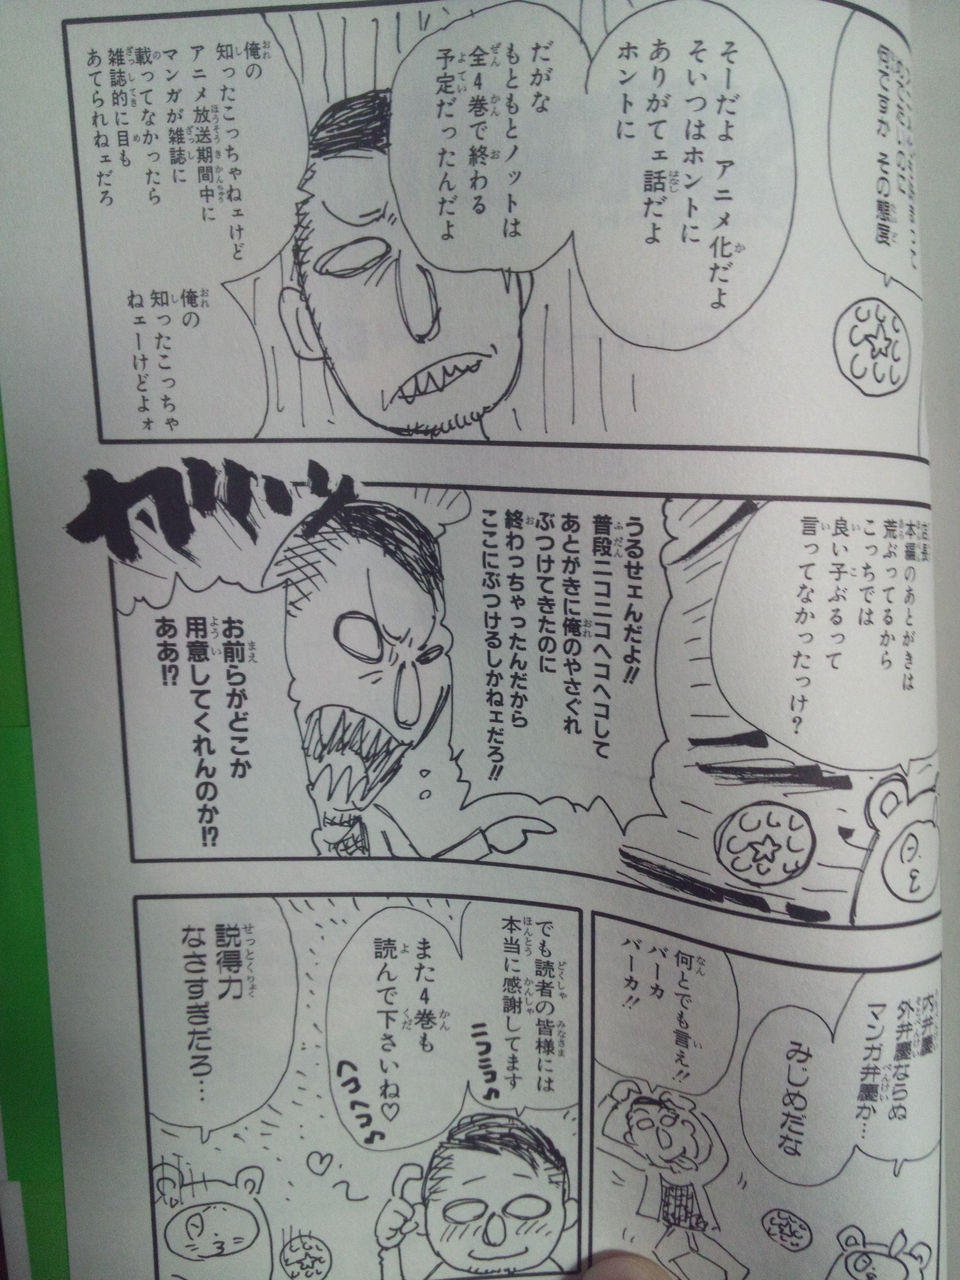 その態度
そーだよ アニメ化だよ
そいつはホントに
ありがてェ話だよ
ホントに
だがな
もともとノットは
全4巻で終わる
予定だったんだよ
俺の
知ったこっちゃねェけど
アニメ放送期間中に
マンガが雑誌に
載ってなかったら
雑誌的に目も
あてられねェだろ
俺の
知ったこっちゃ
ねェーけどよォ
店長
本編のあとがきは
荒ぶってるから
こっちでは
良い子ぶるって
言ってなかったっけ？
うるせェんだよ!!
普段ニコニコヘコヘコして
あとがきに俺のやさぐれ
ぶつけてきたのに
終わっちゃったんだから
ここにぶつけるしかねェだろ!!
お前らがどこか
用意してくれんのか!?
ああ!?
内弁慶
外弁慶ならぬ
マンガ弁慶か…
みじめだな
何とでも言え!!
バーカ
バーカ!!
でも読者の皆様には
本当に感謝してます
ニコニコ
また4巻も
読んで下さいね♡
説得力
なさすぎだろ…